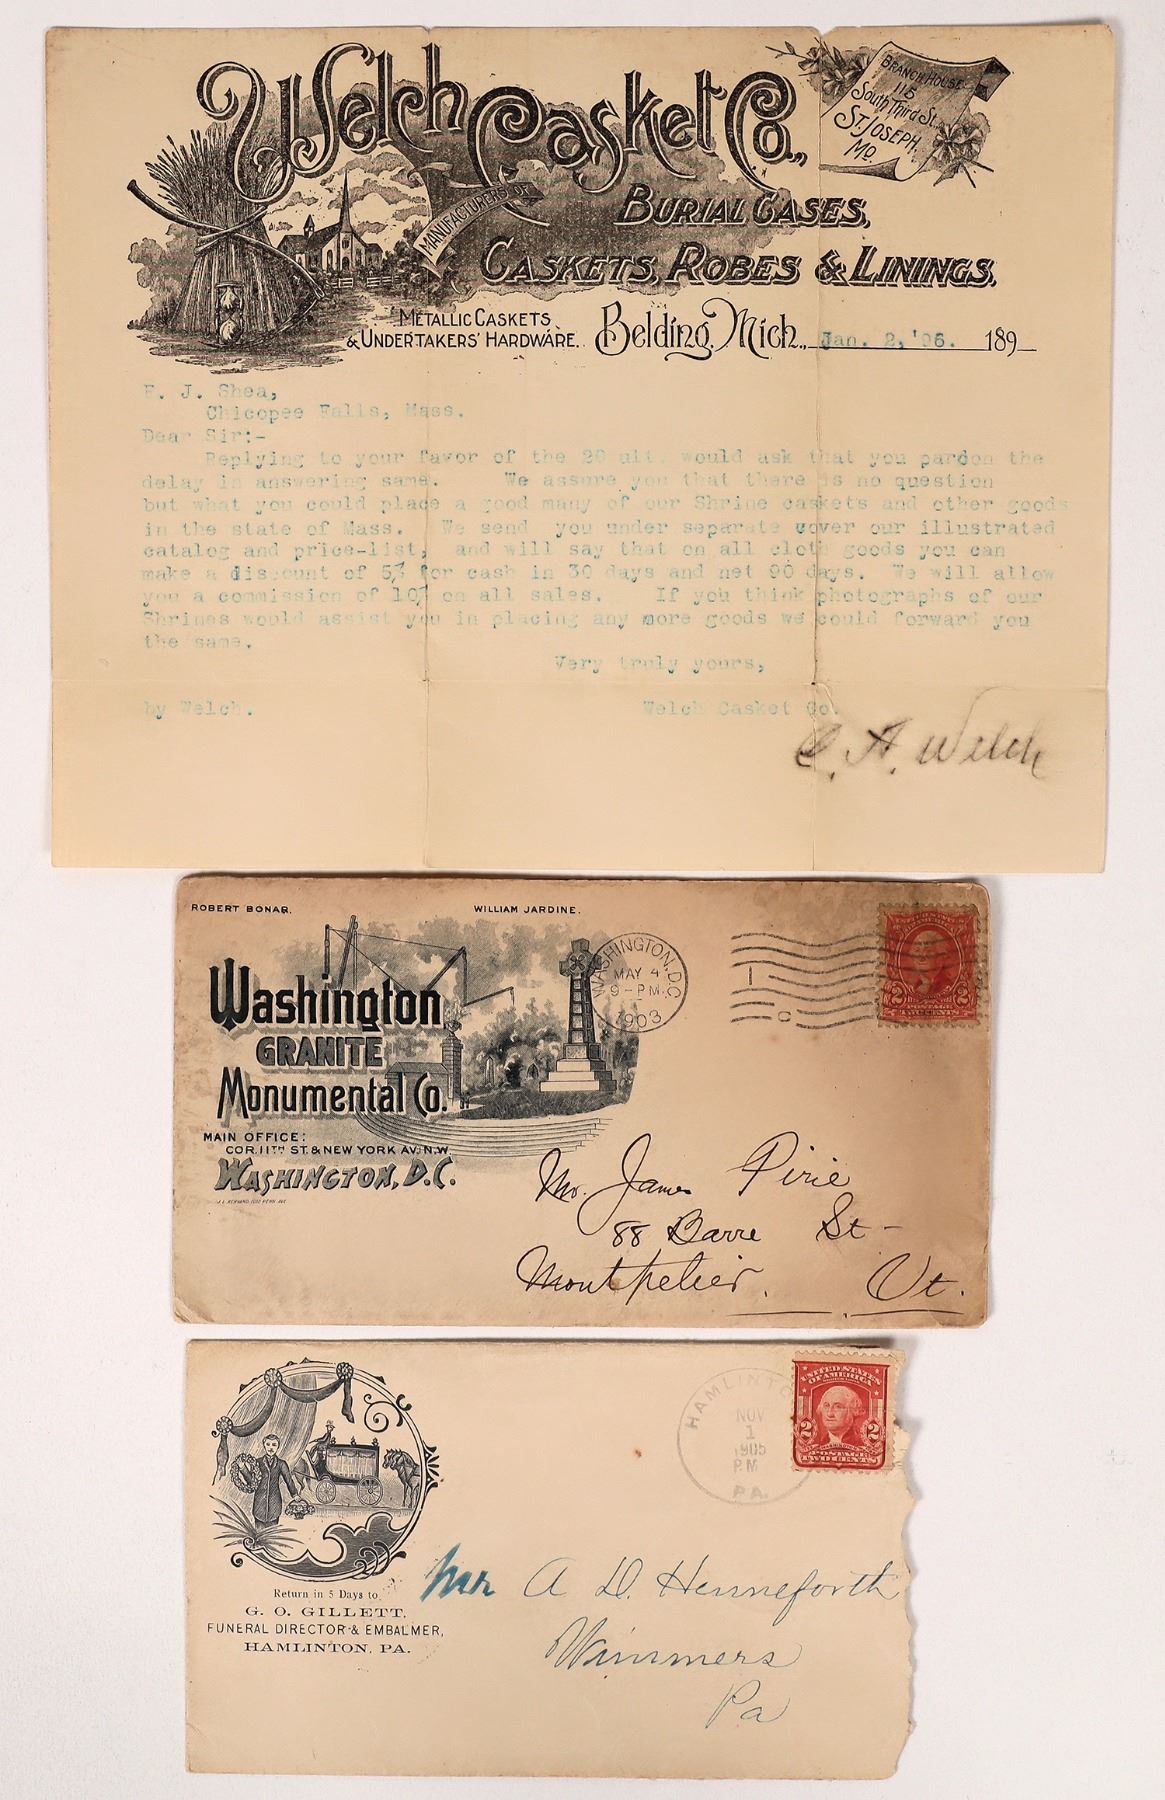 Welch Casket Co.,
BRANCH HOUSE
115
South Third St.
ST. JOSEPH,
MO.
MANUFACTURERS OF
BURIAL CASES,
CASKETS, ROBES & LININGS.
METALLIC CASKETS
& UNDERTAKERS' HARDWARE.
Belding, Mich., Jan. 2, '96. 189
F. J. Shea,
Chicopee Falls, Mass.
Dear Sir:-
Replying to your favor of the 20 ult. would ask that you pardon the
delay in answering same. We assure you that there is no question
but what you could place a good many of our Shrine caskets and other goods
in the state of Mass. We send you under separate cover our illustrated
catalog and price-list, and will say that on all cloth goods you can
make a discount of 5% for cash in 30 days and net 90 days. We will allow
you a commission of 10% on all sales. If you think photographs of our
Shrines would assist you in placing any more goods we could forward you
the same.
Very truly yours,
by Welch. Welch Casket Co.
C. A. Welch
ROBERT BONAR. WILLIAM JARDINE.
Washington
GRANITE
Monumental Co.
MAIN OFFICE:
COR. 11TH ST. & NEW YORK AV. N.W.
WASHINGTON, D.C.
WASHINGTON, D.C.
MAY 4
9-PM
1903
1
C
POSTAGE
2 2
TWO CENTS
Mr. James Pirie
88 Barre St-
Montpelier. Vt.
Return in 5 Days to
G. O. GILLETT,
FUNERAL DIRECTOR & EMBALMER,
HAMLINTON, PA.
HAMLINTO
NOV
1
1905
PM
PA.
UNITED STATES
OF AMERICA
2 2
POSTAGE
TWO CENTS
Mr A D. Henneforth
Wimmers
Pa